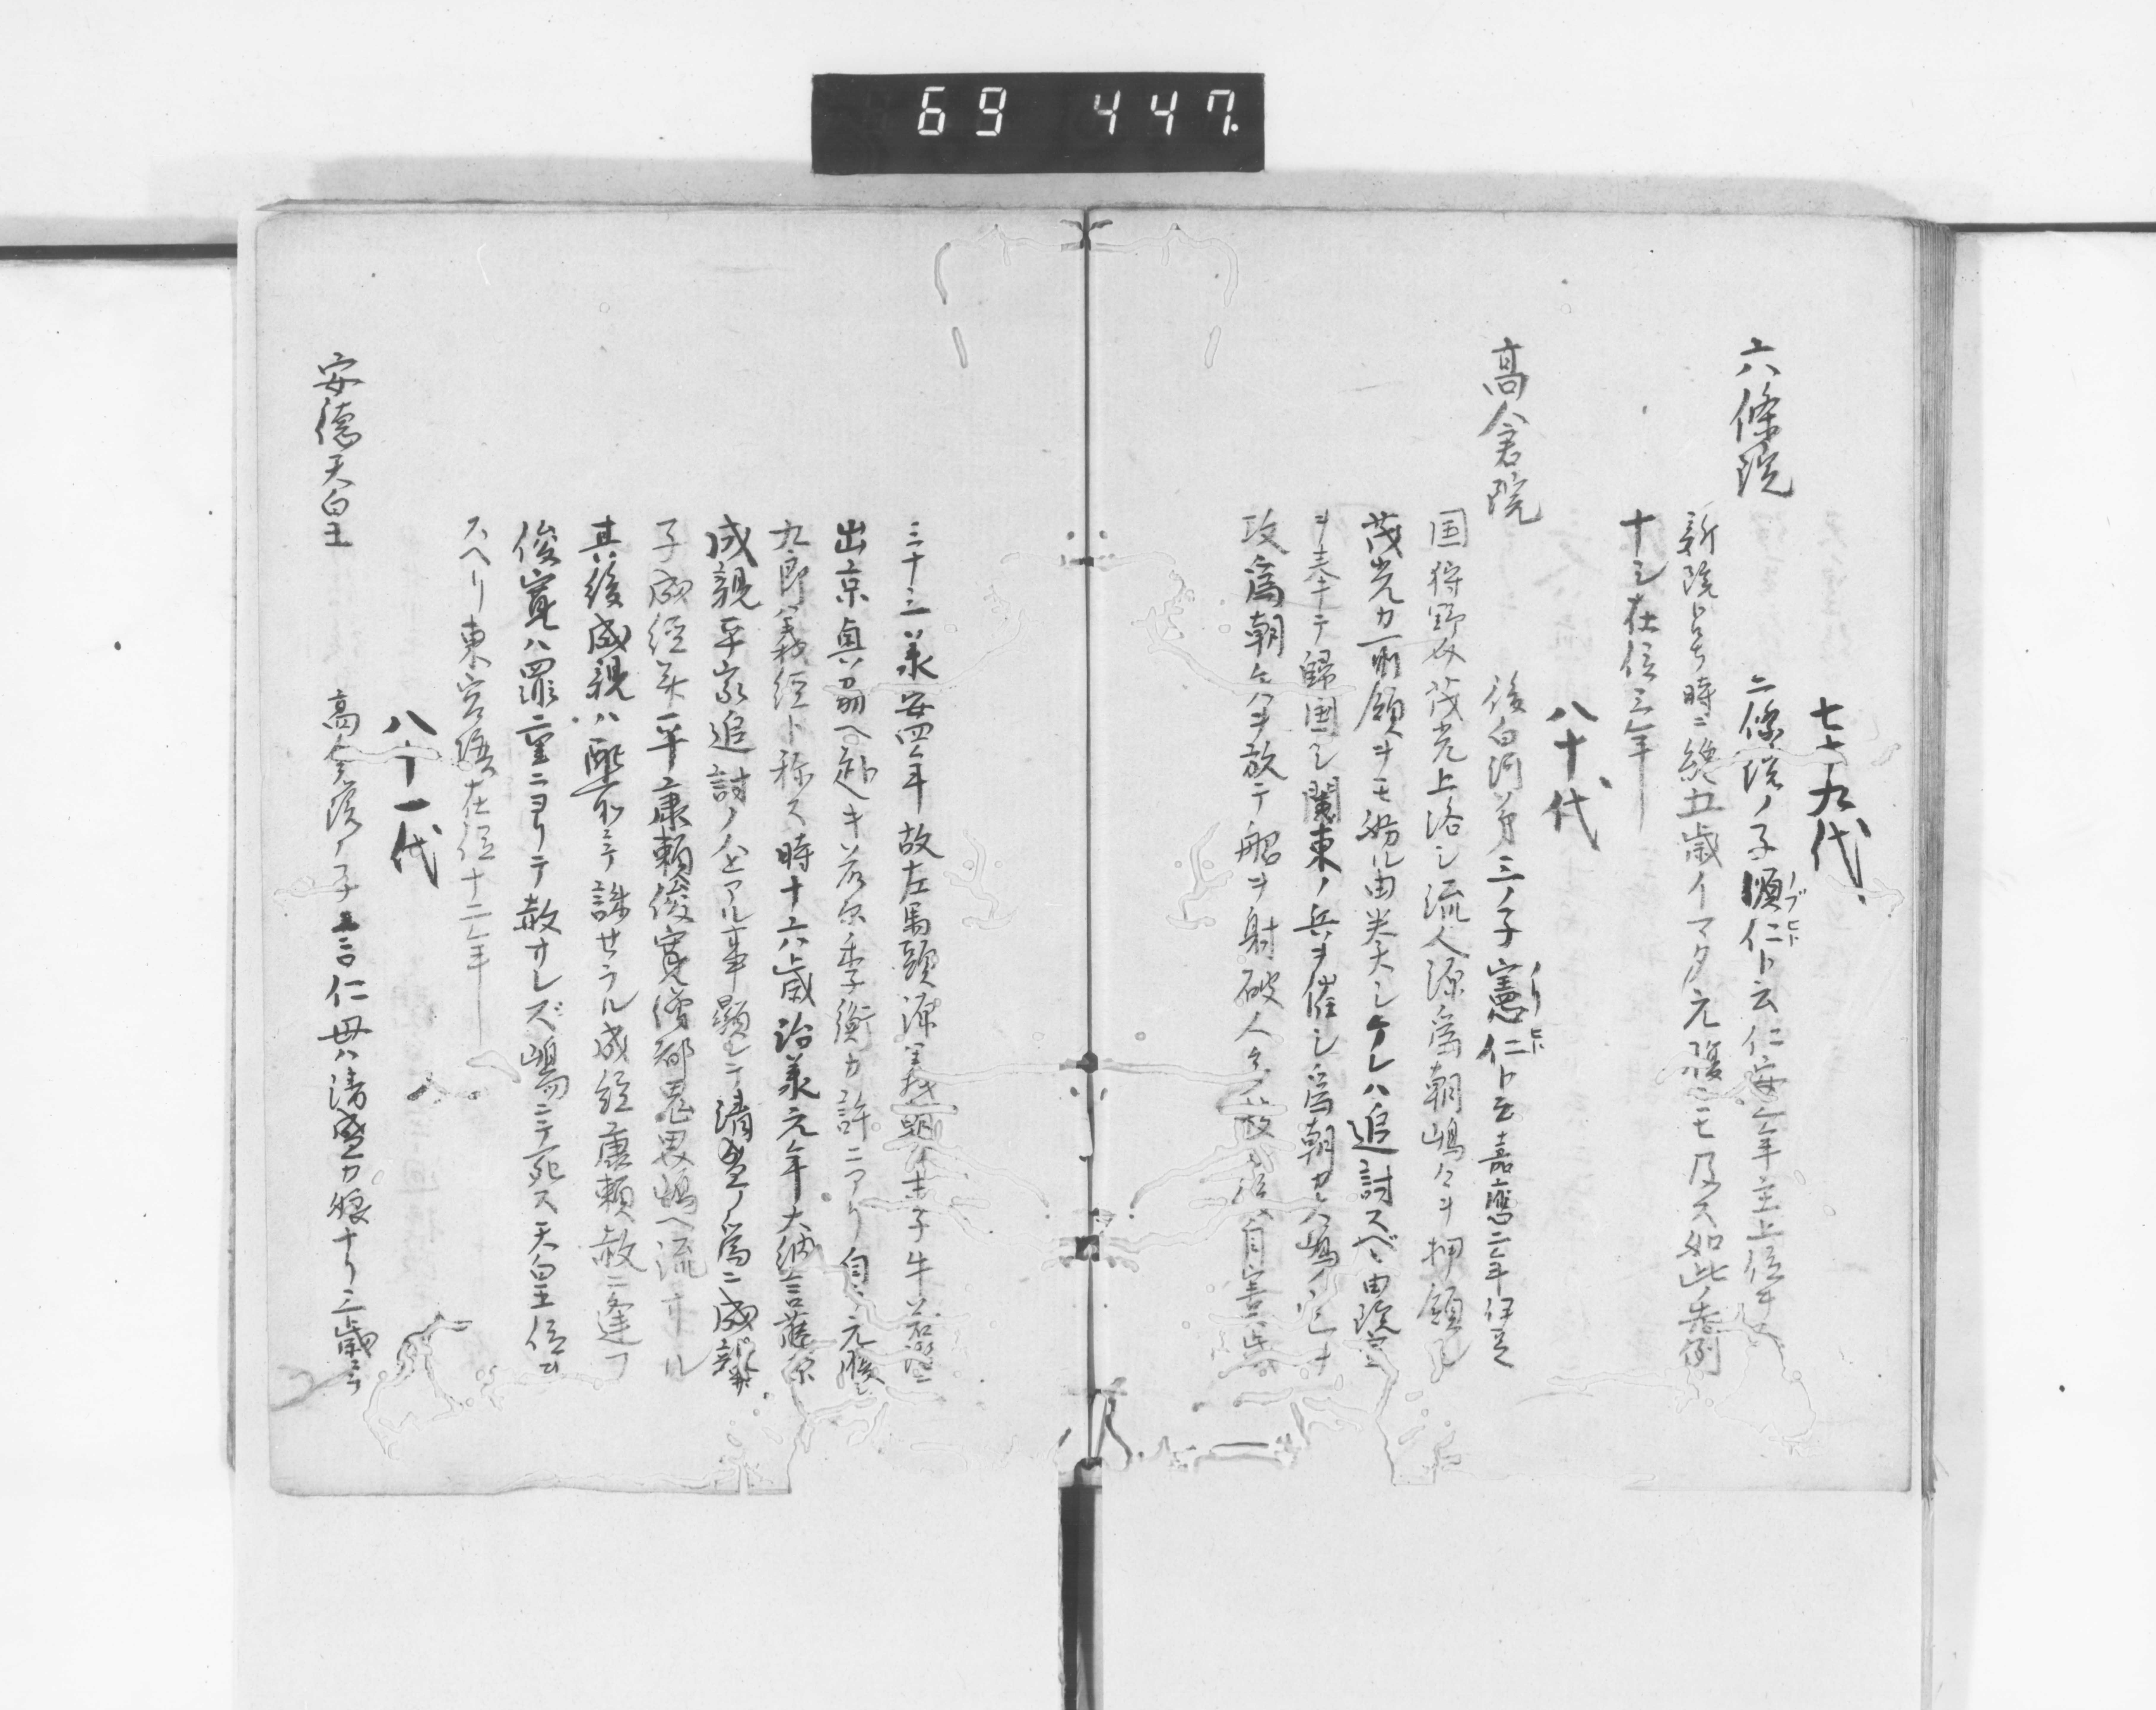 69 447.
七十九代
六條院
二條院ノ子順仁ト云仁安三年主上位ヲ
ノブヒト
新院ト号時ニ纔五歳イマタ元服ニモ及ス如此ノ先例
ナシ在位三年
八十代
高倉院
後白河第三ノ子憲仁ト云嘉應二年伊豆
ノリヒト
国狩野介茂光上洛シ流人源為朝嶋々ヲ押領シ
茂光カ所領ヲモ妨ル由奏シケレハ追討スベキ由院宣
ヲ奉テ歸国シ関東ノ兵ヲ催シ為朝カ嶋ノ
攻為朝矢ヲ放テ舩ヲ射破人々
自害
三十三承安四年故左馬頭源義朝カ末子牛若
出京奥刕ヘ赴キ藤原秀衡カ許ニアリ自ラ元服シ
九郎義經ト称ス時十六歳治承元年大納言藤原
成親平家追討ノ企アル事顯レテ清盛ノ為ニ成親
子成經并平康頼俊寛僧都鬼界嶋ヘ流サル
其後成親ハ配所ニテ誅セラル成經康頼赦ニ逢フ
俊寛ハ罪重ニヨリテ赦サレズ嶋ニテ死ス天皇位ヲ
スヘリ東宮
在位十二年
八十一代
安徳天皇
高倉院ノ子言仁母ハ清盛カ娘ナリ三歳ニテ